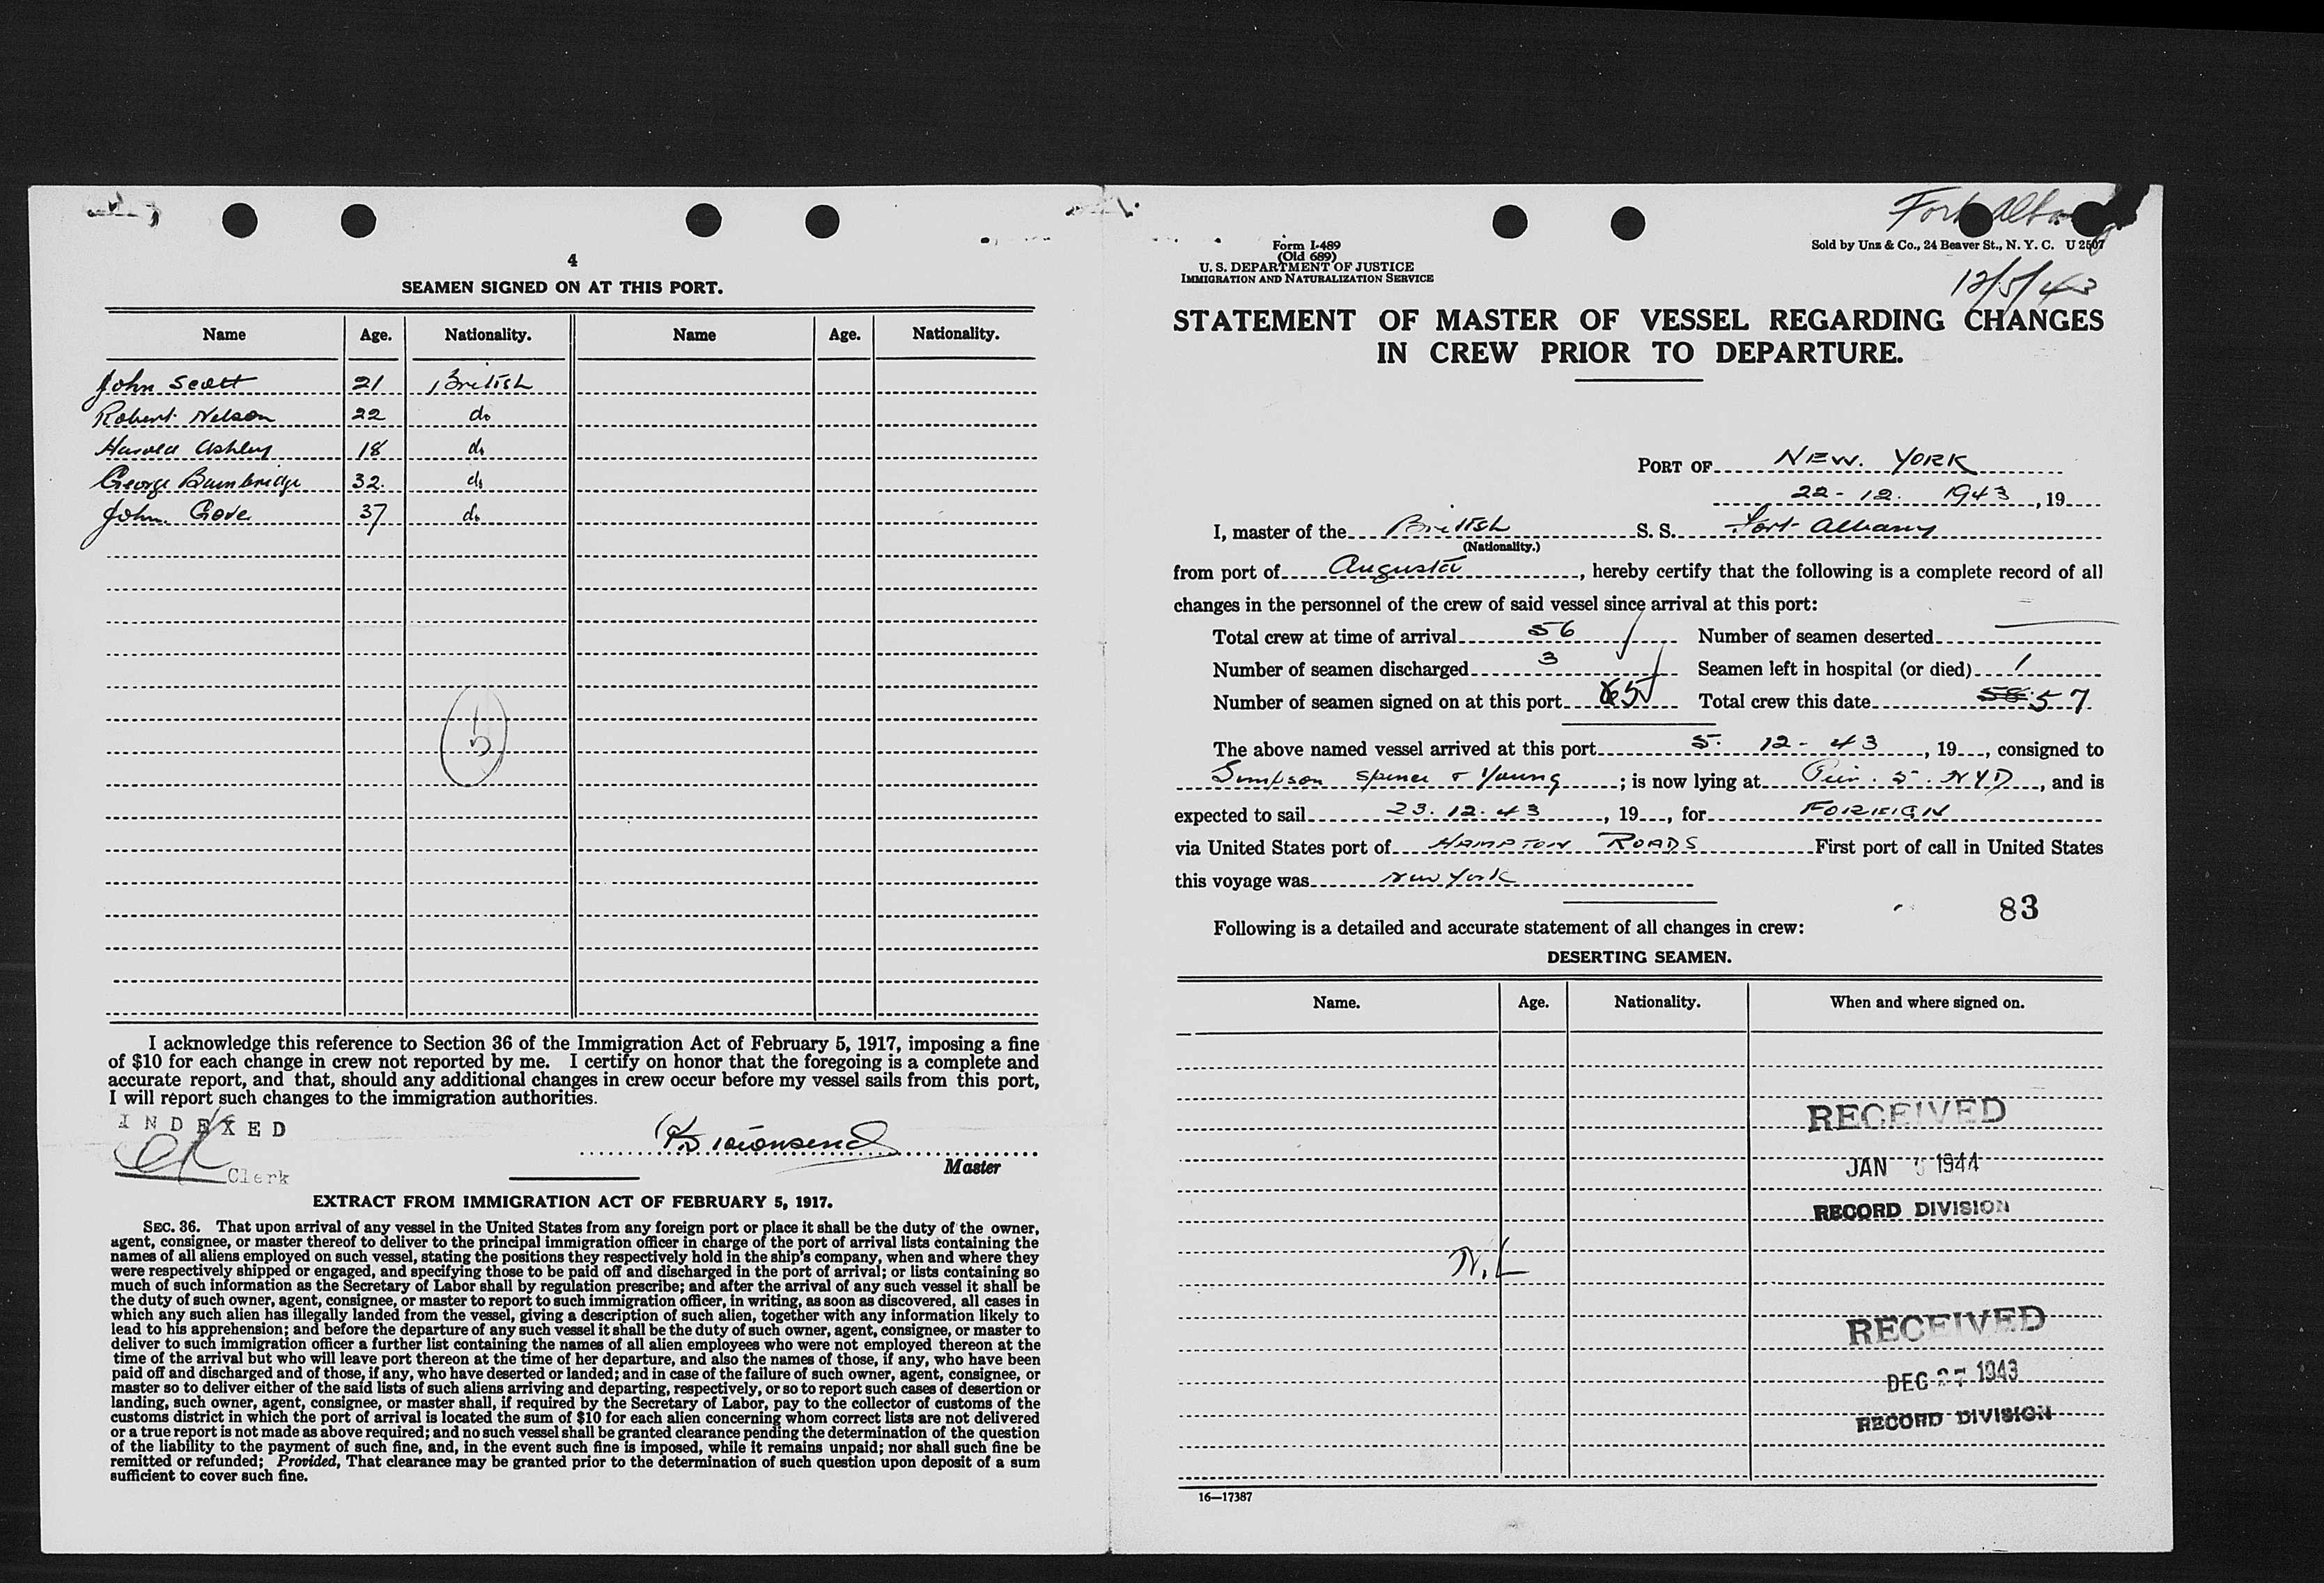 4
SEAMEN SIGNED ON AT THIS PORT.
Name Age. Nationality. Name Age. Nationality.
John Scott 21 British
Robert Nelson 22 do
Harold Ashley 18 do
George Bainbridge 32. do
John. Gove 37 do
5
I acknowledge this reference to Section 36 of the Immigration Act of February 5, 1917, imposing a fine
of $10 for each change in crew not reported by me. I certify on honor that the foregoing is a complete and
accurate report, and that, should any additional changes in crew occur before my vessel sails from this port,
I will report such changes to the immigration authorities.
INDEXED
Clerk
Townsend
Master
EXTRACT FROM IMMIGRATION ACT OF FEBRUARY 5, 1917.
SEC. 36. That upon arrival of any vessel in the United States from any foreign port or place it shall be the duty of the owner,
agent, consignee, or master thereof to deliver to the principal immigration officer in charge of the port of arrival lists containing the
names of all aliens employed on such vessel, stating the positions they respectively hold in the ship's company, when and where they
were respectively shipped or engaged, and specifying those to be paid off and discharged in the port of arrival; or lists containing so
much of such information as the Secretary of Labor shall by regulation prescribe; and after the arrival of any such vessel it shall be
the duty of such owner, agent, consignee, or master to report to such immigration officer, in writing, as soon as discovered, all cases in
which any such alien has illegally landed from the vessel, giving a description of such alien, together with any information likely to
lead to his apprehension; and before the departure of any such vessel it shall be the duty of such owner, agent, consignee, or master to
deliver to such immigration officer a further list containing the names of all alien employees who were not employed thereon at the
time of the arrival but who will leave port thereon at the time of her departure, and also the names of those, if any, who have been
paid off and discharged and of those, if any, who have deserted or landed; and in case of the failure of such owner, agent, consignee, or
master so to deliver either of the said lists of such aliens arriving and departing, respectively, or so to report such cases of desertion or
landing, such owner, agent, consignee, or master shall, if required by the Secretary of Labor, pay to the collector of customs of the
customs district in which the port of arrival is located the sum of $10 for each alien concerning whom correct lists are not delivered
or a true report is not made as above required; and no such vessel shall be granted clearance pending the determination of the question
of the liability to the payment of such fine, and, in the event such fine is imposed, while it remains unpaid; nor shall such fine be
remitted or refunded; Provided, That clearance may be granted prior to the determination of such question upon deposit of a sum
sufficient to cover such fine.
Fort Albany
Form I-489
(Old 689)
U. S. DEPARTMENT OF JUSTICE
IMMIGRATION AND NATURALIZATION SERVICE
Sold by Unz & Co., 24 Beaver St., N. Y. C. U 2507
12/5/43
STATEMENT OF MASTER OF VESSEL REGARDING CHANGES
IN CREW PRIOR TO DEPARTURE.
PORT OF NEW. YORK
22-12. 1943, 19
I, master of the British S. S. Fort Albany
(Nationality.)
from port of Augusta, hereby certify that the following is a complete record of all
changes in the personnel of the crew of said vessel since arrival at this port:
Total crew at time of arrival 56 Number of seamen deserted
Number of seamen discharged 3 Seamen left in hospital (or died) 1
Number of seamen signed on at this port 5 Total crew this date 58 57.
The above named vessel arrived at this port 5. 12-43, 19, consigned to
Simpson Spence & Young; is now lying at Pier. 5. NYD, and is
expected to sail 23.12.43, 19, for FOREIGN
via United States port of HAMPTON ROADS First port of call in United States
this voyage was New York
83
Following is a detailed and accurate statement of all changes in crew:
DESERTING SEAMEN.
Name. Age. Nationality. When and where signed on.
RECEIVED
JAN 5 1944
RECORD DIVISION
N.L
RECEIVED
DEC 27 1943
RECORD DIVISION
16—17387